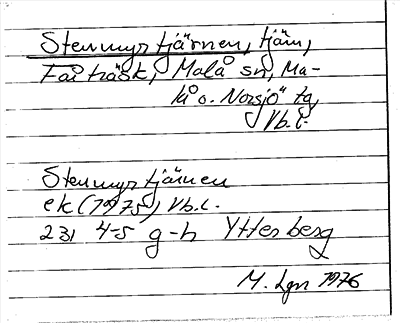 Stenmyrtjärnen, tjärn,
Fårträsk, Malå sn, Ma-
lå o. Norsjö tg,
Vb.l.
Stenmyrtjärnen
ek (1975) Vb.l.
23I 4-5 g-h Ytterberg
M. Lgn 1976